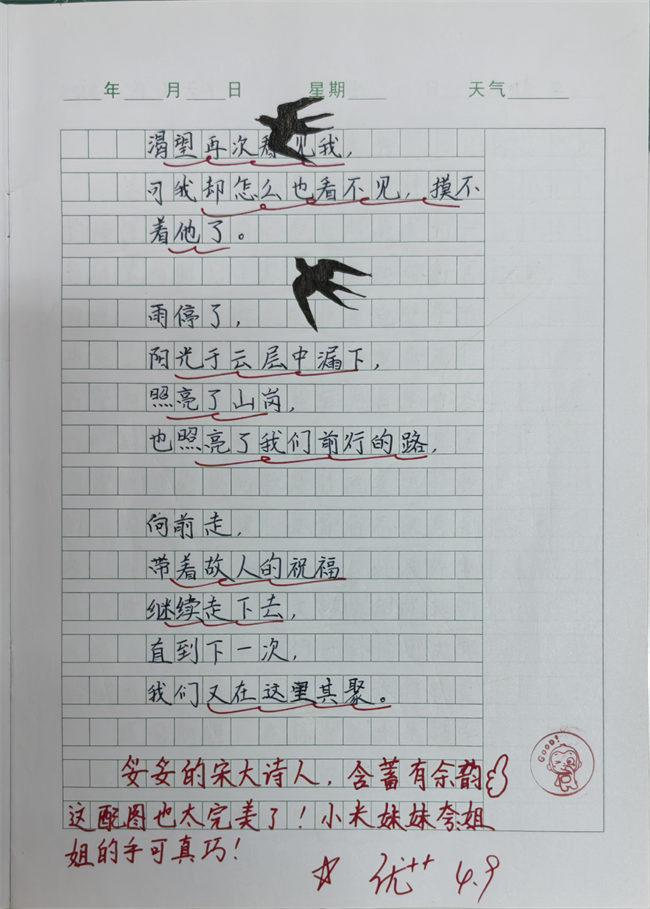 年 月 日 星期 天气
渴望再次看见我，
可我却怎么也看不见，摸不
着他了。
雨停了，
阳光于云层中漏下，
照亮了山岗，
也照亮了我们前行的路，
向前走，
带着故人的祝福
继续走下去，
直到下一次，
我们又在这里其聚。
妥妥的宋大诗人，含蓄有余韵
这配图也太完美了！小米妹妹夸姐
姐的手可真巧！
GOOD!
优++ 4.9